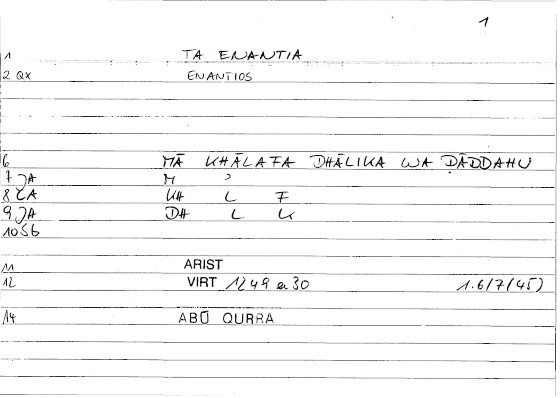 1
1 TA ENANTIA
2 QX ENANTIOS
6 MĀ KHĀLAFA DHĀLIKA WA ḌĀDDAHU
7 JA M ʾ
8 ZA KH L F
9 JA DH L K
10 56
11 ARIST
12 VIRT 1249 a 30 1.6/7(45)
14 ABŪ QURRA